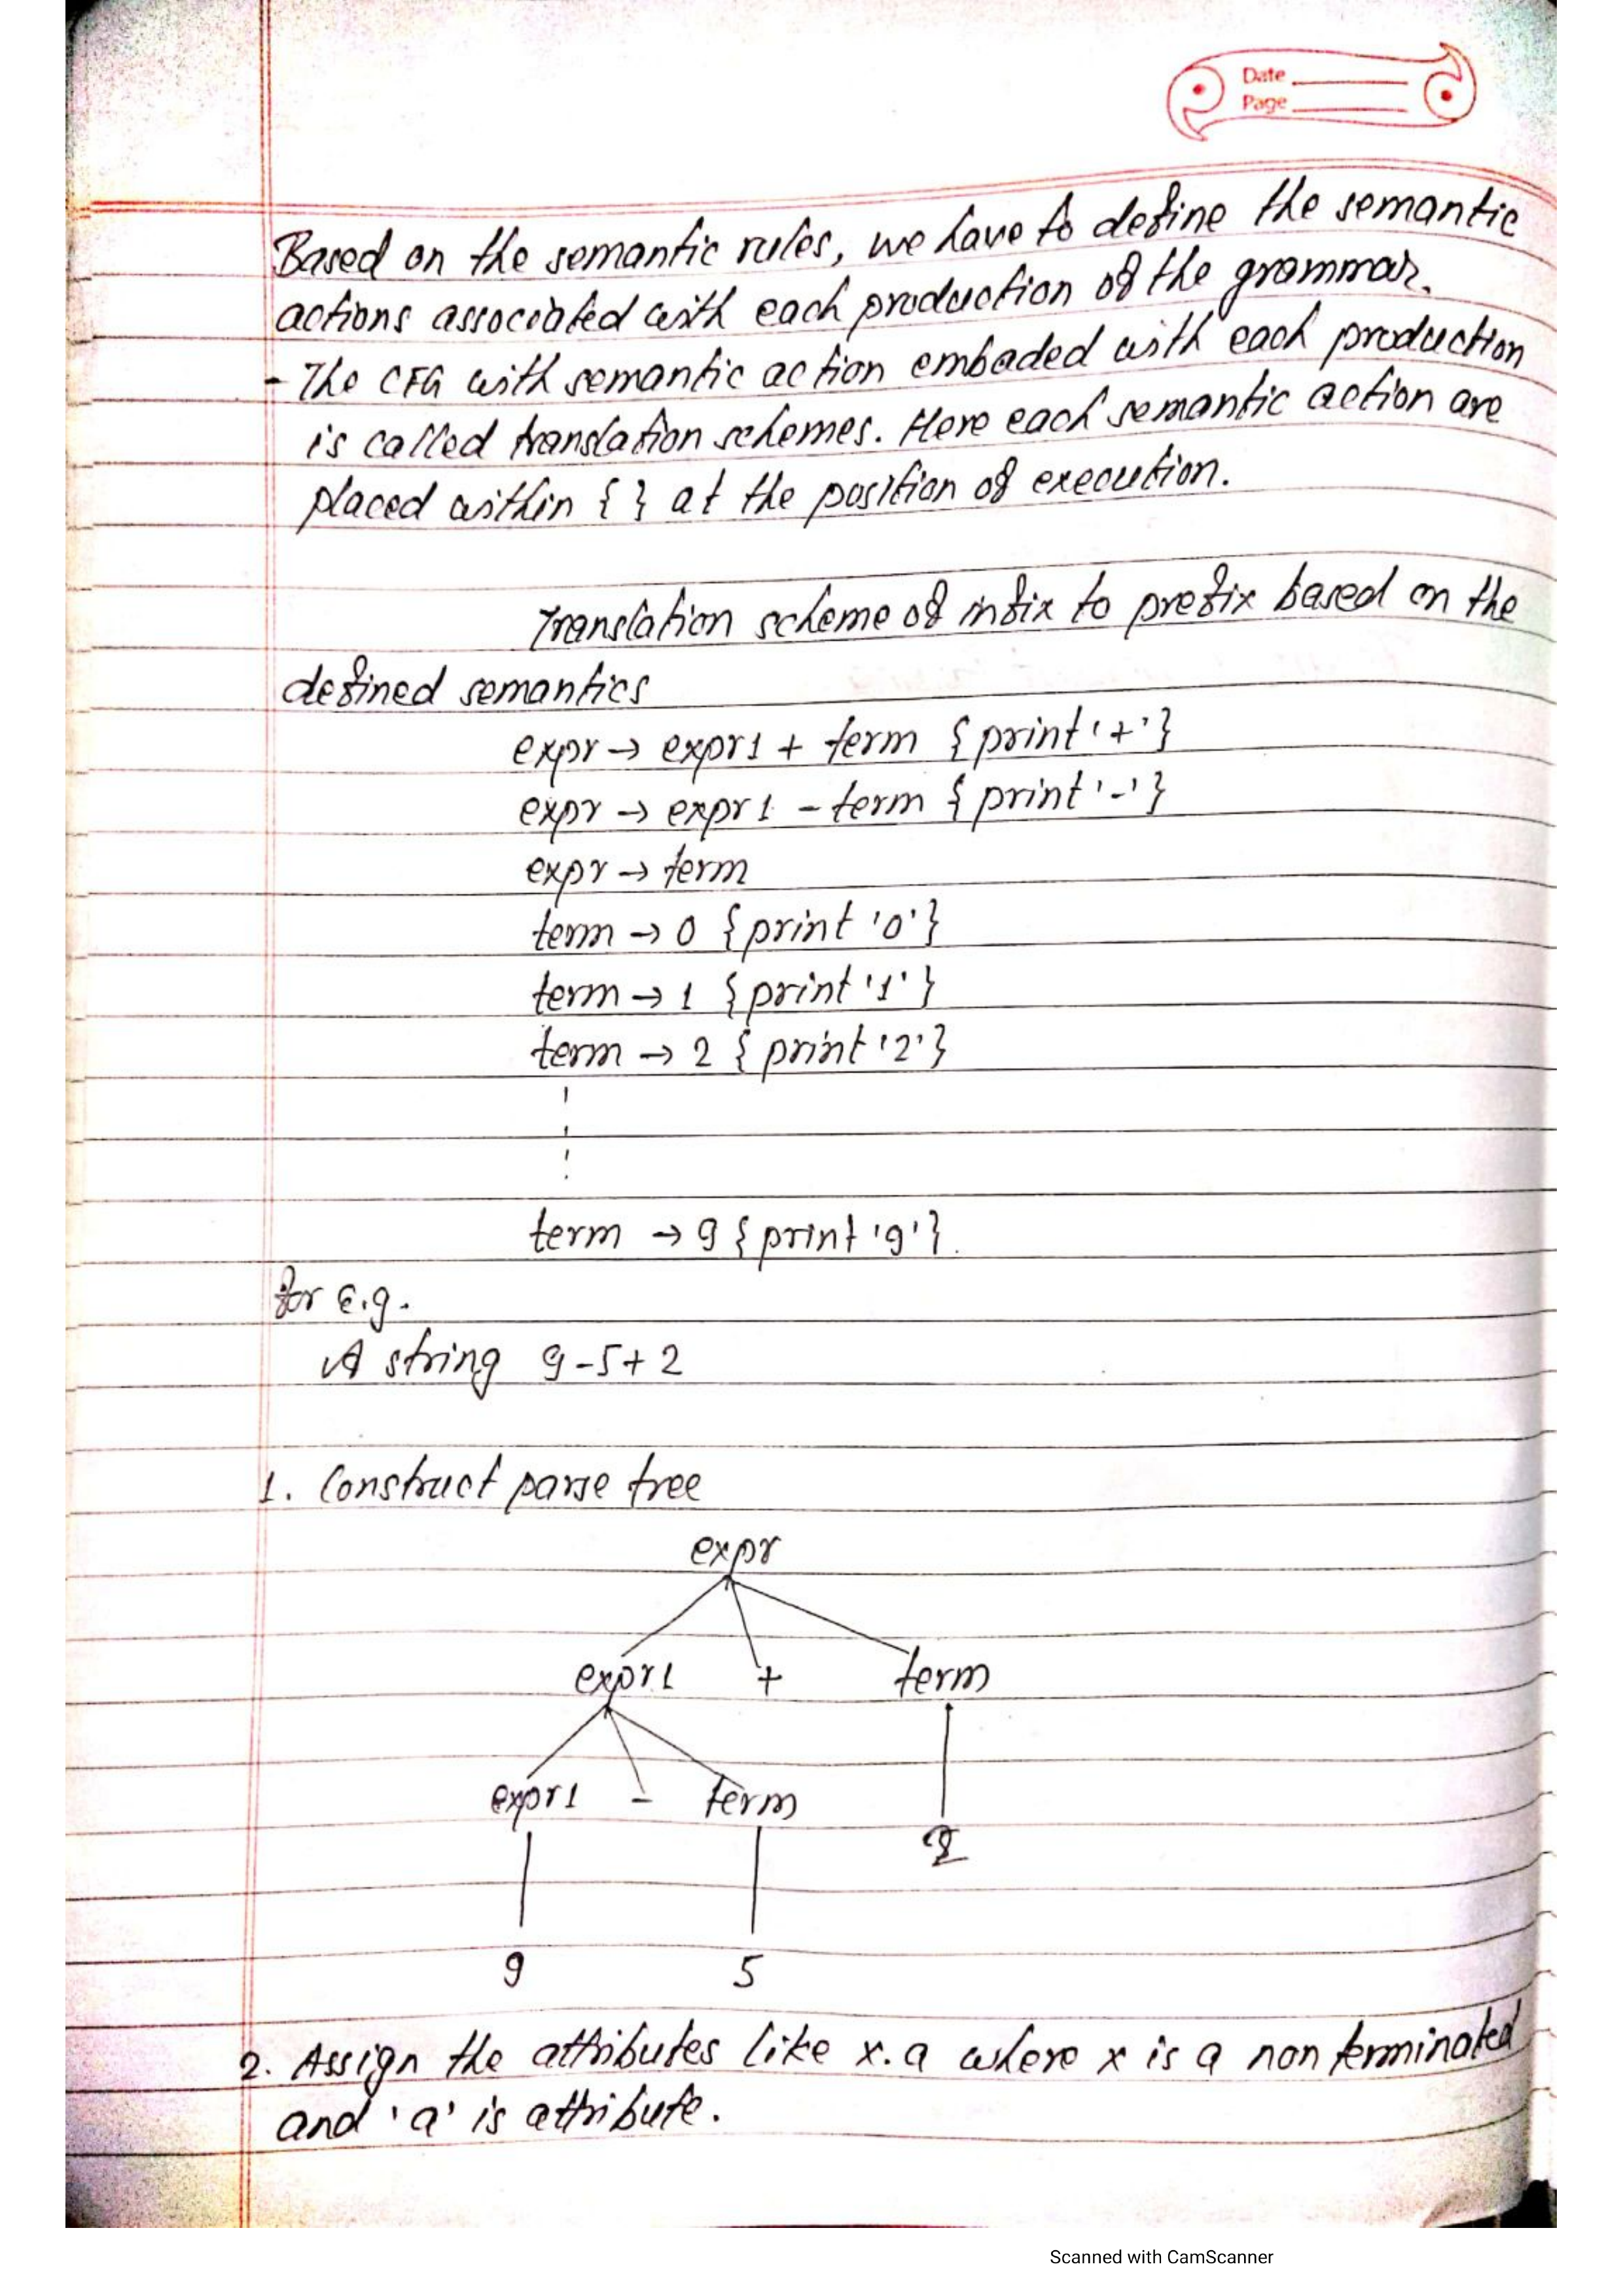 Date
Page
Based on the semantic rules, we have to define the semantic
actions associated with each production of the grammar.
- The CFG with semantic action embaded with each production
is called translation schemes. Here each semantic action are
placed within { } at the position of execution.
Translation scheme of infix to prefix based on the
defined semantics
expr → expr1 + term { print '+' }
expr → expr1 - term { print '-' }
expr → term
term → 0 { print '0' }
term → 1 { print '1' }
term → 2 { print '2' }
term → 9 { print '9' }.
for e.g.
A string 9-5+2
1. Construct parse tree
expr
expr1 + term
expr1 - term
2
9 5
2. Assign the attributes like x.a where x is a non terminated
and 'a' is attribute.
Scanned with CamScanner